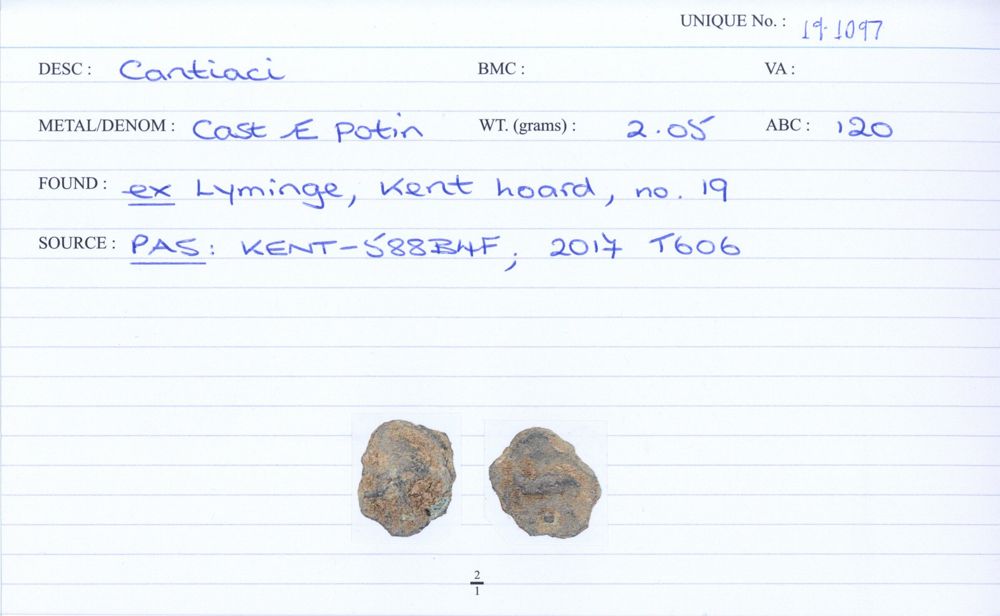 UNIQUE No. : 19·1097
DESC : Cantiaci BMC : VA :
METAL/DENOM : Cast Æ Potin WT. (grams) : 2.05 ABC : 120
FOUND : ex Lyminge, Kent hoard, no. 19
SOURCE : PAS: KENT-588B4F; 2017 T606
2
1